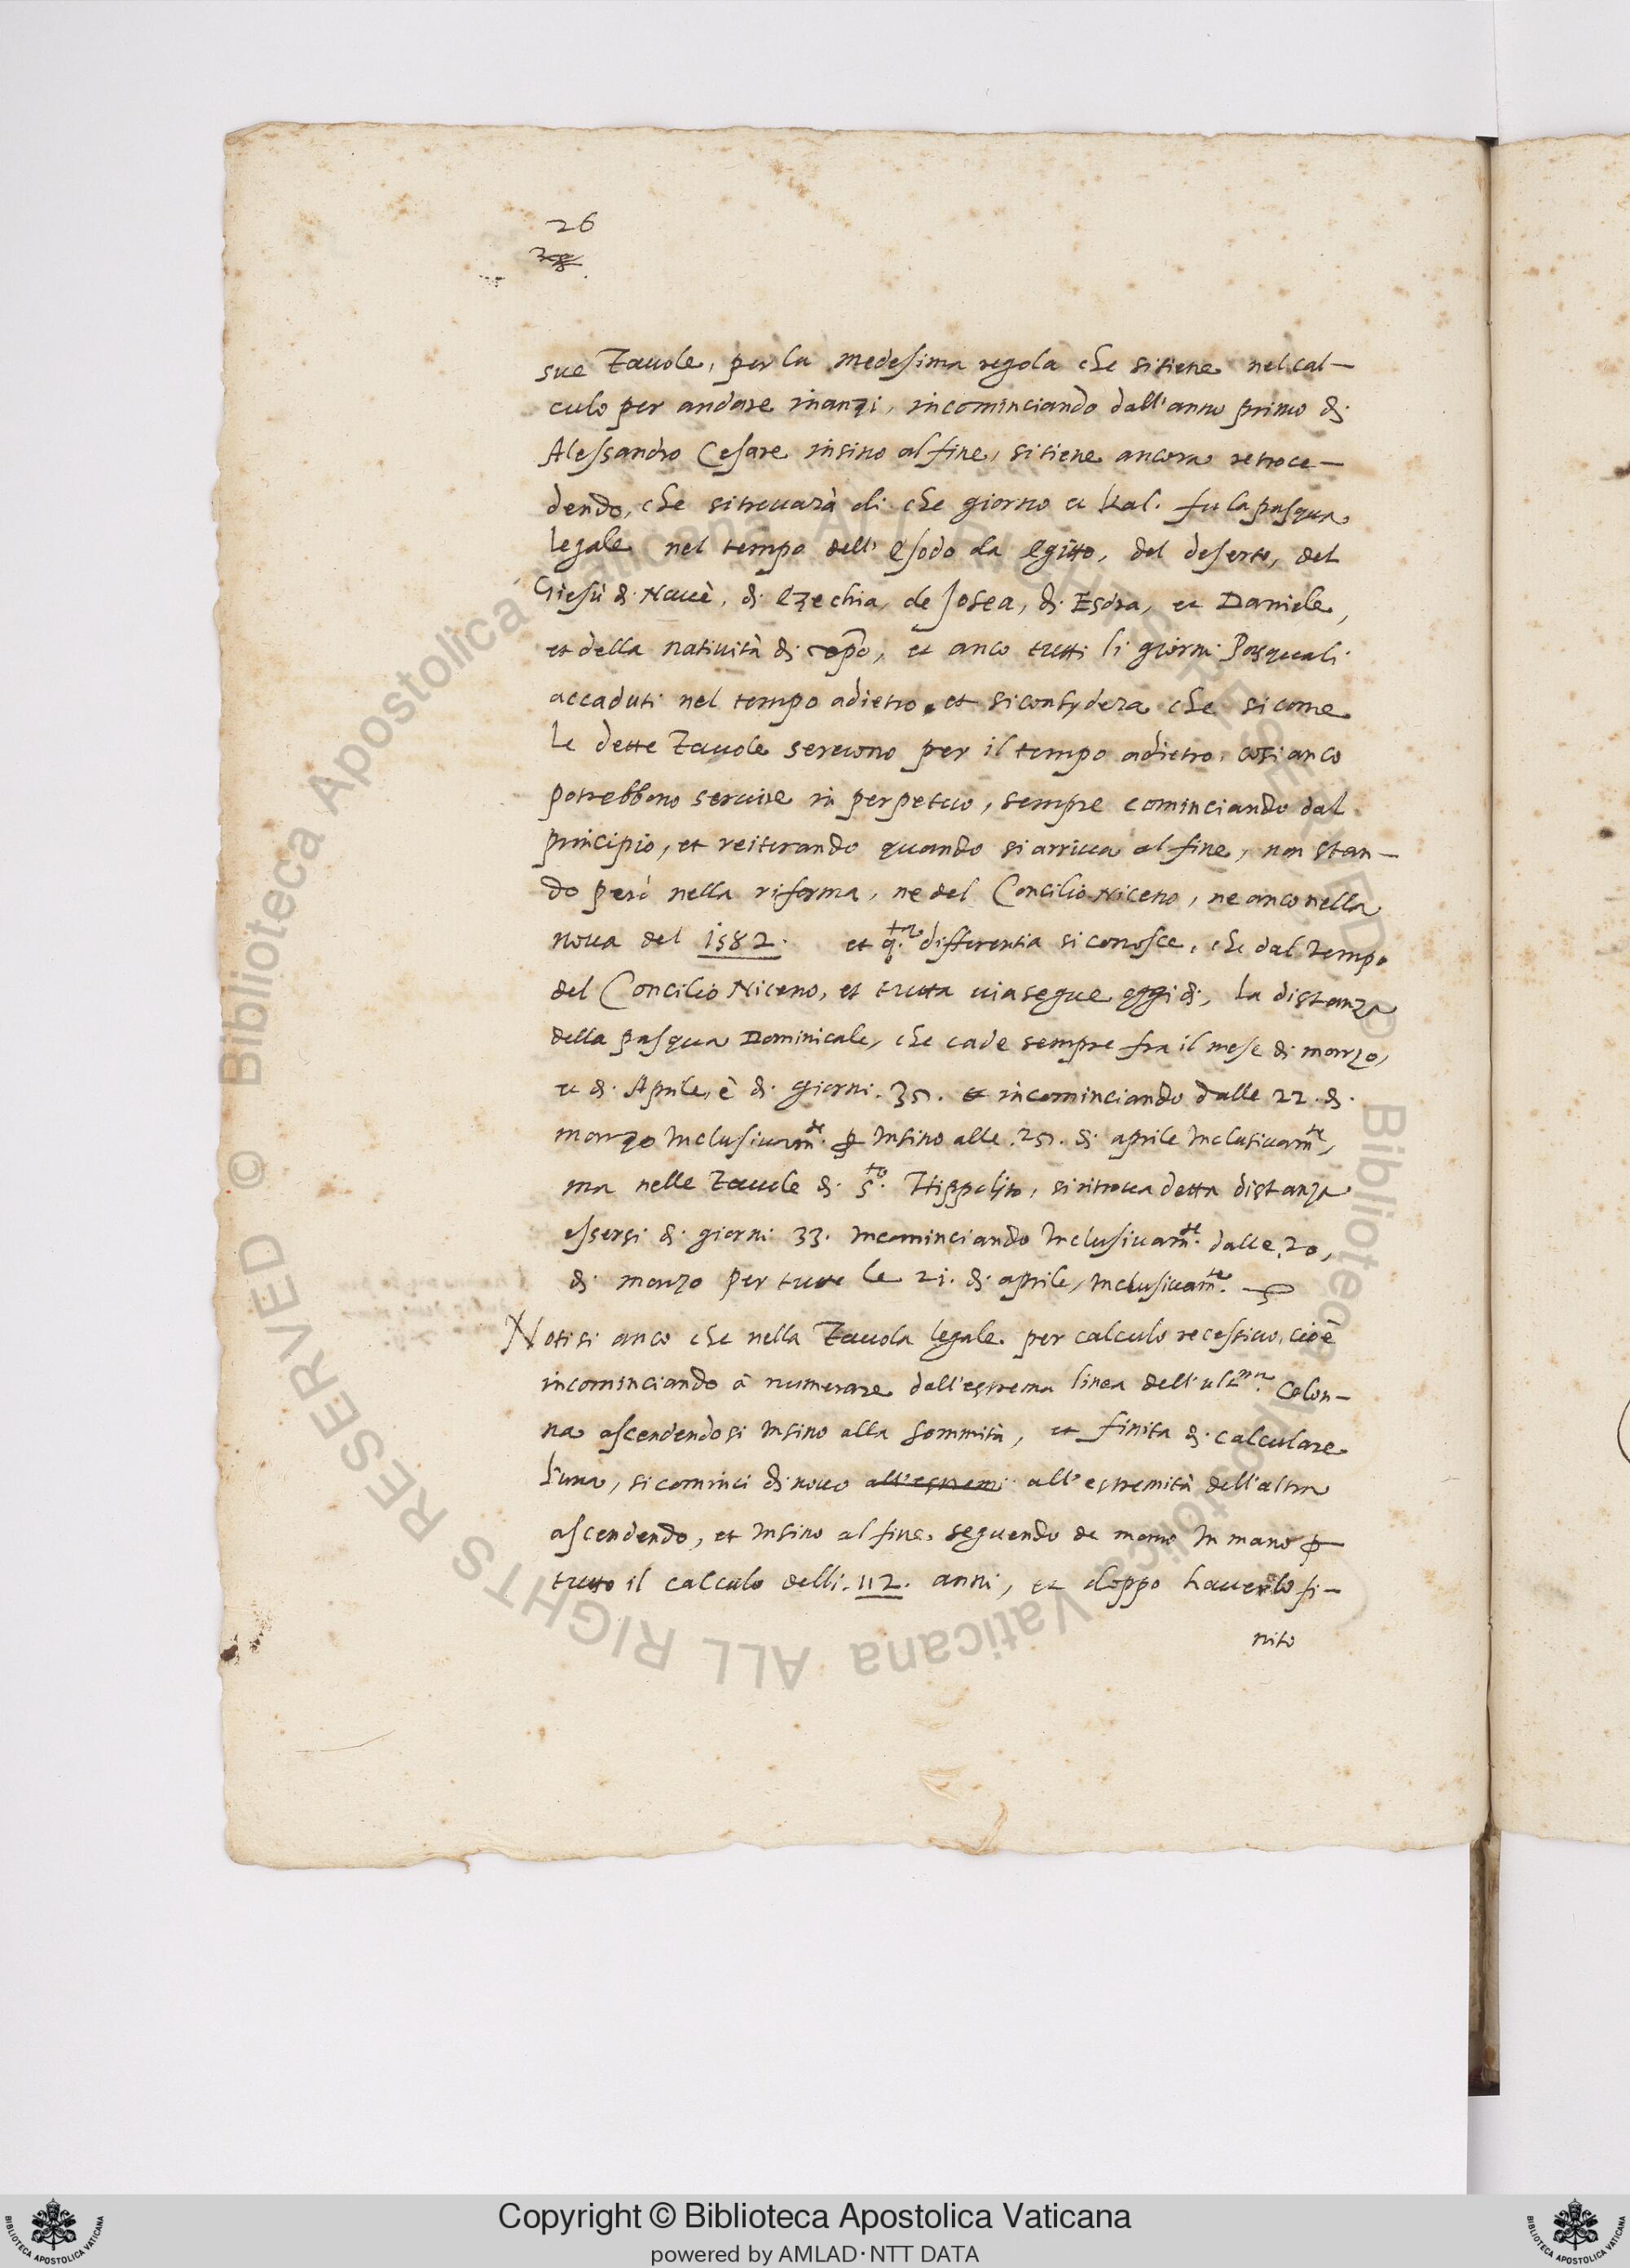 26
sue Tauole, per la medesima regola che si tiene nel cal-
culo per andare inanzi, incominciando dall'anno primo di
Alessandro Cesare insino al fine, si tiene ancora retroce-
dendo, che si trouarà di che giorno et Kal. fu la pasqua
legale nel tempo dell' Esodo da Egitto, del deserto, del
Giesù di Nauè, di Ezechia, de Josea, di Esdra, et Daniele,
et della natiuità di , et anco tutti li giorni Pasquali
accaduti nel tempo adietro. et si consydera che si come
le dette Tauole seruono per il tempo adietro, cosi anco
potrebbono seruire in perpetuo, sempre cominciando dal
principio, et reiterando quando si arriua al fine, non stan-
do però nella riforma, ne del Concilio Niceno, ne anco nella
noua del 1582. et differentia si conosce, che dal tempo
del Concilio Niceno, et tutta uia segue oggi di, la distanza
della pasqua Dominicale, che cade sempre fra il mese di marzo,
et di Aprile, è di giorni .35. et incominciando dalle 22. di
marzo Inclusiuam.te Insino alle .25. di aprile Inclusiuam.te,
ma nelle Tauole di S.to Hippolito, si ritroua detta distanza
essersi di giorni 33. Incominciando Inclusiuam.te dalle 20,
di marzo per tutte le 21. di aprile, Inclusiuam.te
Notisi anco che nella Tauola legale per calculo recessiuo, cioè
incominciando à numerare dall'estrema linea dell'ult.ma Colon-
na ascendendosi Insino alla sommità, et finita di calculare
l'una, si cominci di nouo all'estremi all'estremità dell'altra
ascendendo, et Insino al fine, seguendo de mano In mano
tutto il calculo delli .112. anni, et doppo hauerlo fi-
nito
© Biblioteca Apostolica Vaticana ALL RIGHTS RESERVED
© Biblioteca Apostolica Vaticana ALL RIGHTS RESERVED
BIBLIOTECA APOSTOLICA VATICANA
Copyright © Biblioteca Apostolica Vaticana
powered by AMLAD·NTT DATA
BIBLIOTECA APOSTOLICA VATICANA